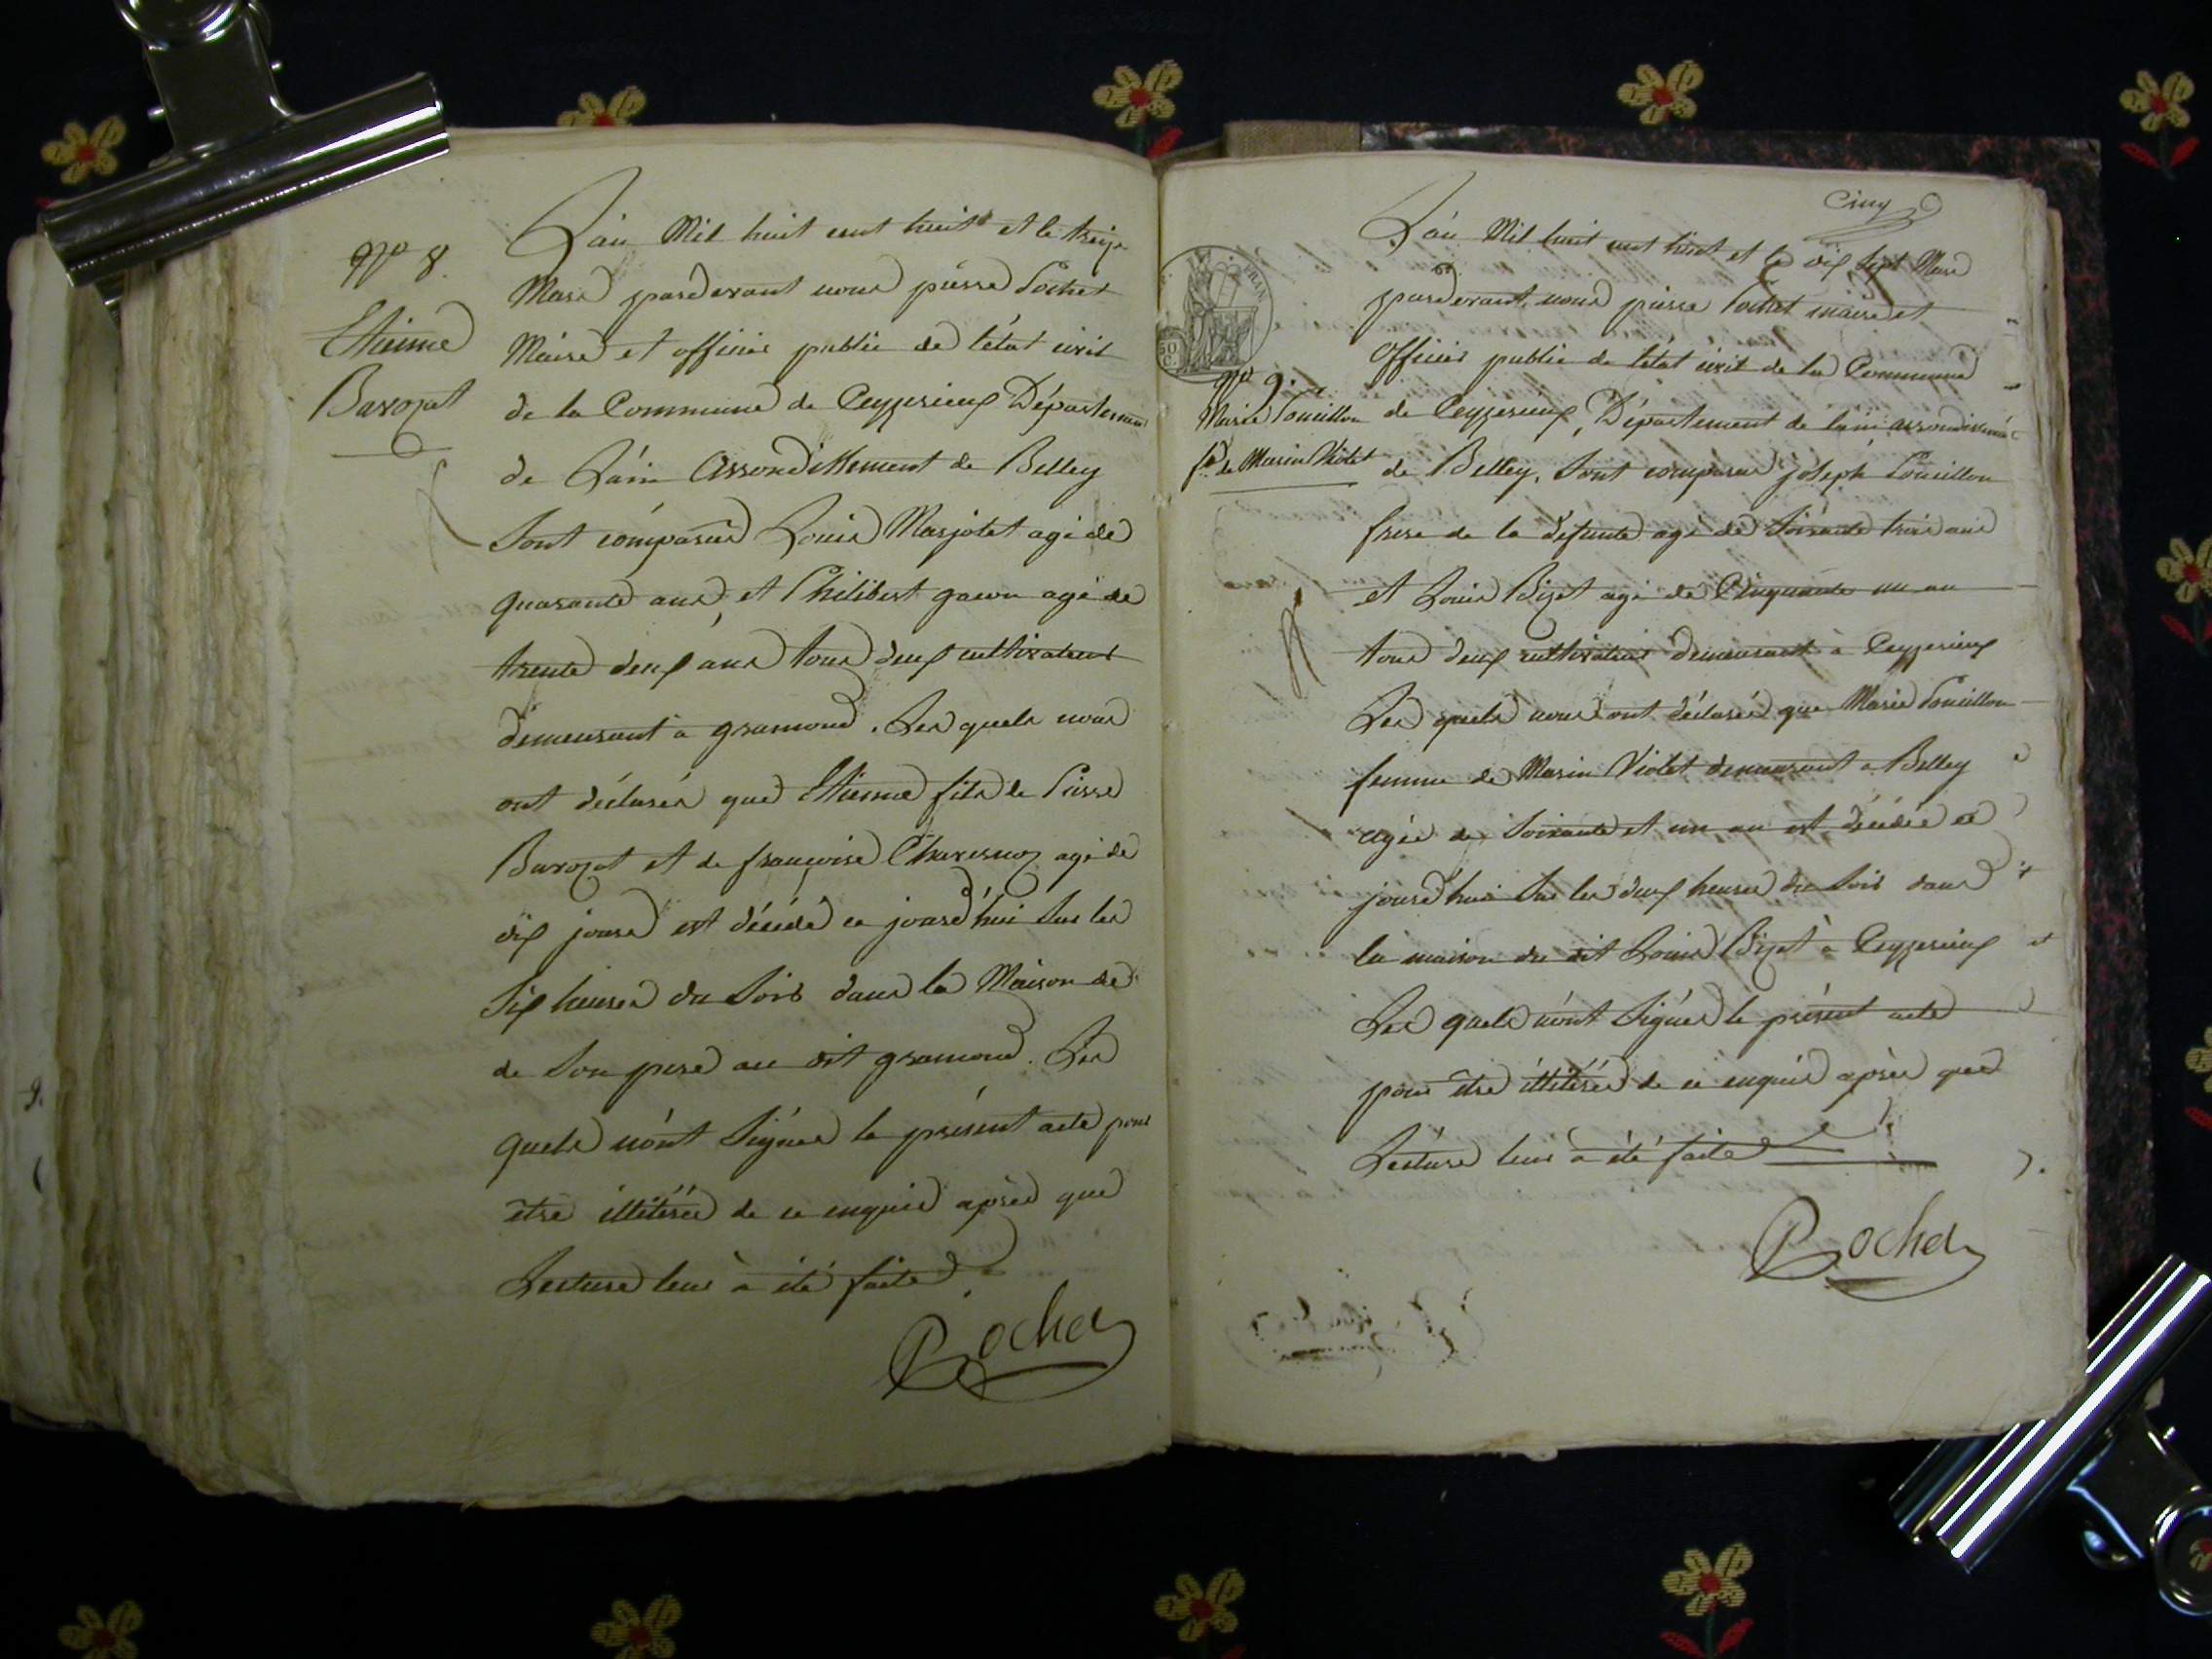 N° 8.
Etienne
Barozat
L'an Mil huit cent huit et le treize
Mars pardevant nous pierre Pochet
Maire et officier public de l'état civil
de la Commune de Ceyzerieux Département
de L'ain Arrondissement de Belley
Sont comparus Louis Marjolet agé de
quarante ans, et Philibert gacon agé de
trente deux ans tous deux cultivateurs
demeurant à gramond. Les quels nous
ont déclarés que Etienne fils de Pierre
Barozat et de françoise agé de
dix jours est décédé ce jourd'hui sur les
Six heures du Soir dans la Maison de
de Son pere au dit gramond. Les
quels n'ont Signés le présent acte pour
etre illitérés de ce enquis après que
Lecture leur à été faite.
Pochet
Cinq
L'an Mil huit cent huit et le dix Sept Mars
pardevant nous pierre Pochet maire et
Officier public de l'état civil de la Commune
N° 9.
Marie Poncillon
fe. de Marin Violet
de Ceyzerieux, Département de l'ain arrondissemt
de Belley. Sont comparus joseph Poncillon
frere de la défunte agé de Soixante trois ans
et Louis Bizet agé de Cinquante un an
tous deux cultivateurs demeurant à Ceyzerieux
Les quels nous ont déclarés que Marie Poncillon
femme de Marin Violet demeurant a Belley
agée de Soixante et un an est décédée ce
jourd'hui Sur les deux heures du Soir dans
la maison du dit Louis Bizet à Ceyzerieux
Les quels n'ont Signés le présent acte
pour être illitérés de ce enquis après que
Lecture leur à été faite
Pochet